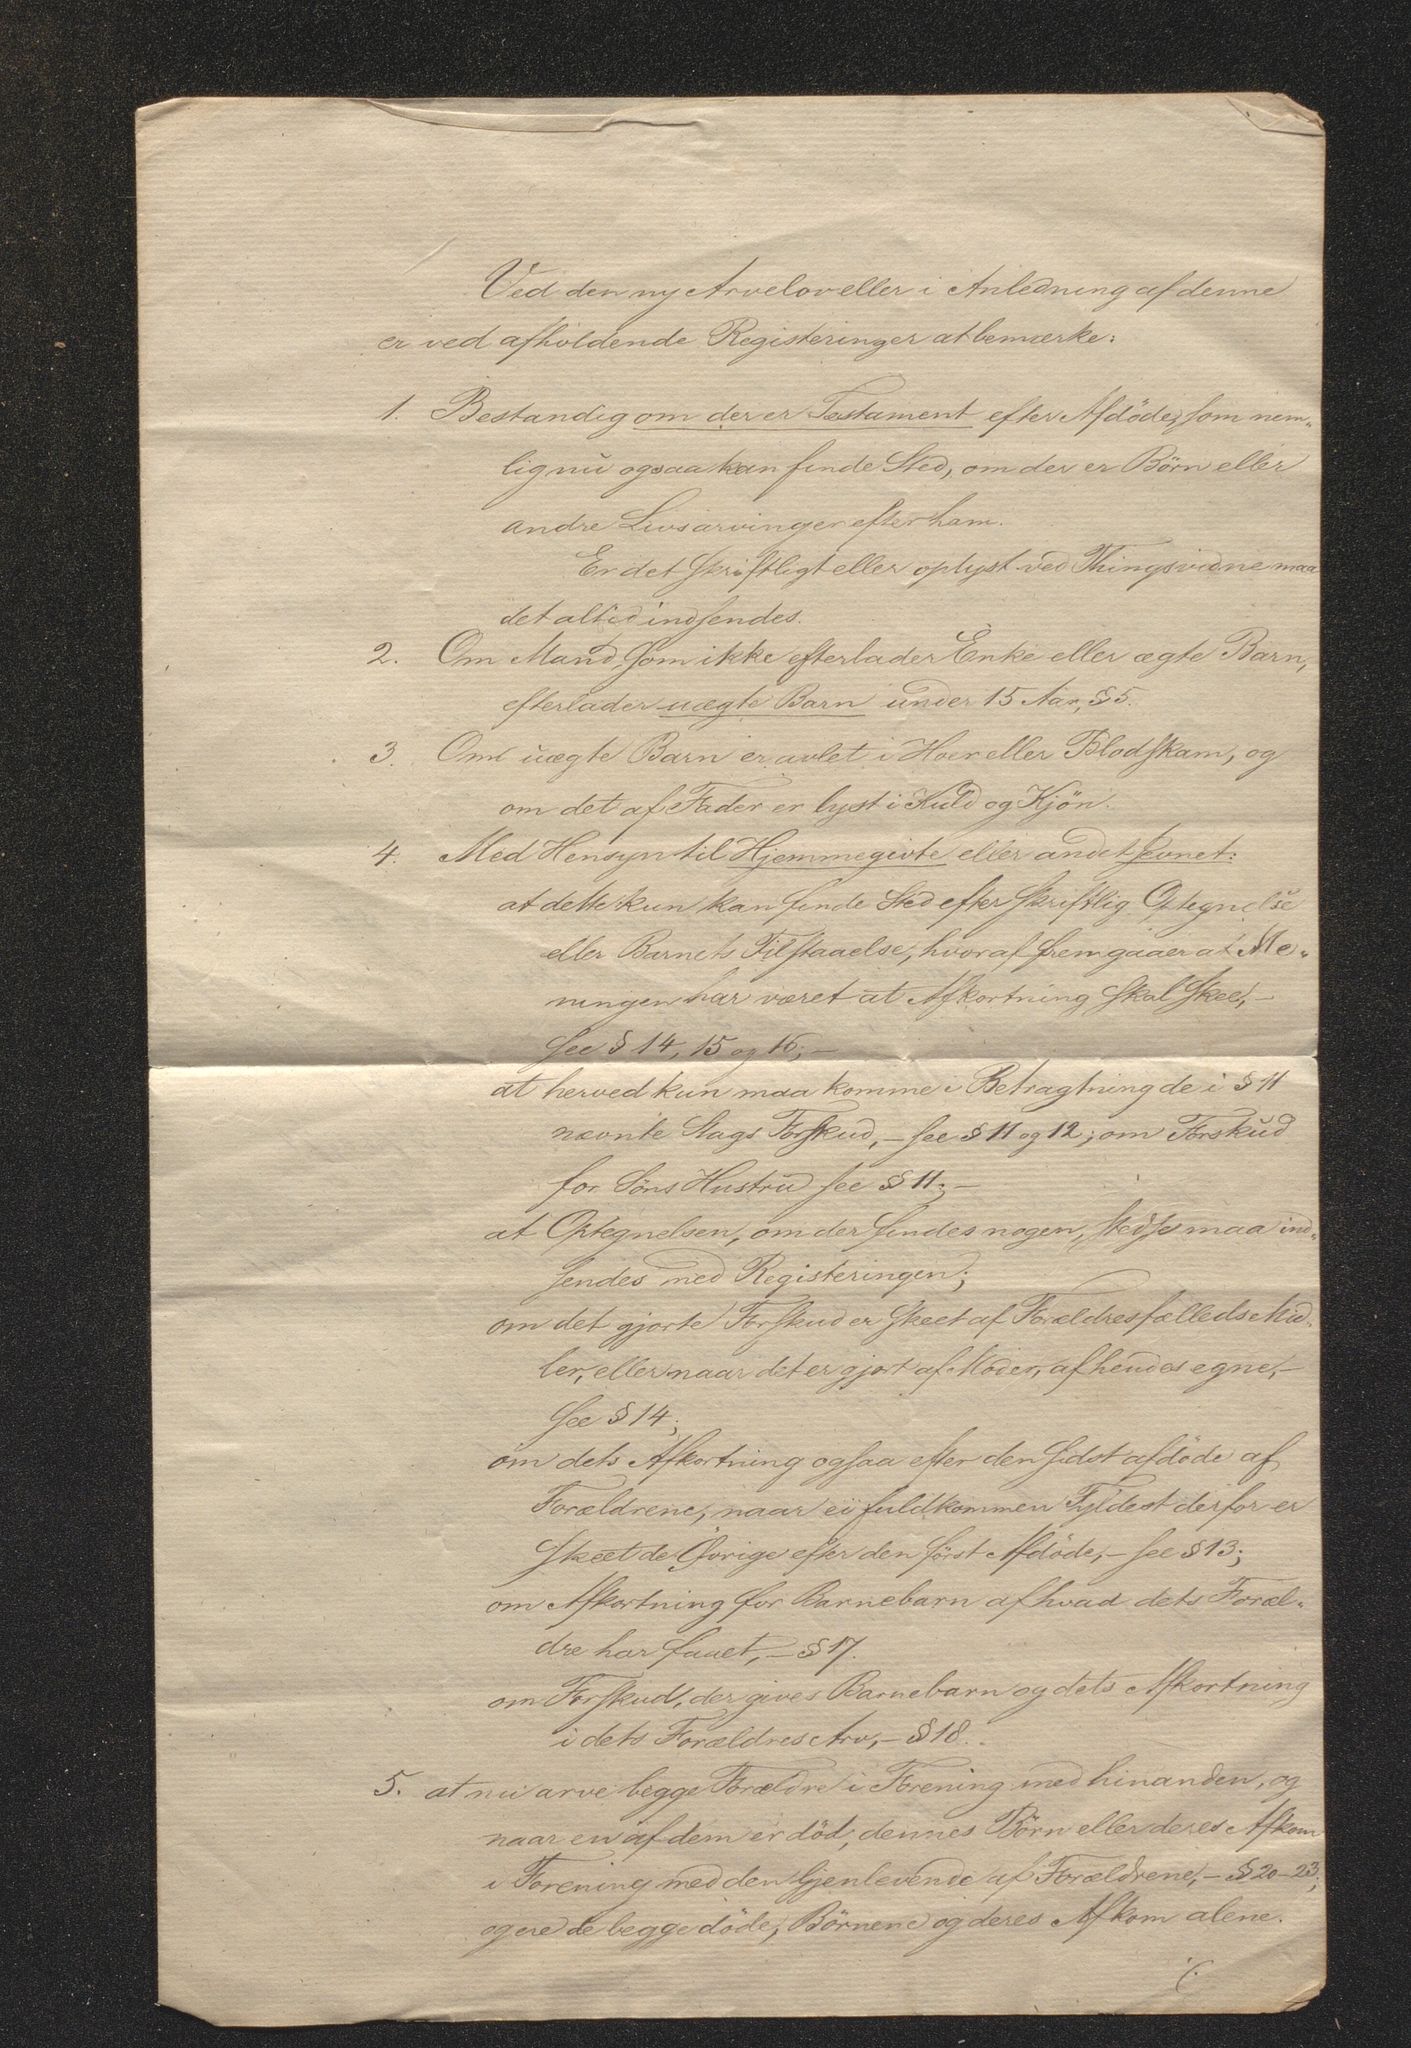 Ved den ny Arvelov eller i Anledning af denne
er ved afholdende Registeringer at bemærke:
1. Bestandig om der er Testament efter Afdöde, som nem-
lig nu ogsaa kan finde Sted, om der er Börn eller
andre Livsarvinger efter ham.
Er det skriftligt eller oplyst ved Thingsvidne maa
det altid indsendes.
2. Om Mand, som ikke efterlader Enke eller ægte Barn,
efterlader uægte Barn under 15 Aar, § 5.
3. Om uægte Barn er avlet i Hoer eller Blodskam, og
om det af Fader er lyst i Kuld og Kjön.
4. Med Hensyn til Hjemmegivte eller andet Jevnet:
at dette kun kan finde Sted efter skriftlig Optegnelse
eller Barnets Tilstaaelse, hvoraf fremgaaer at Me-
ningen har været at Afkortning skal skee, –
see § 14, 15 og 16; –
at herved kun maa komme i Betragtning de i § 11
nævnte Slags Forskud, – see § 11 og 12; om Forskud
for Söns Hustru see § 11; –
at Optegnelsen, om der findes nogen, stedse maa ind-
sendes med Registeringen;
om det gjorte Forskud er skeet af Forældres fælleds Mid-
ler, eller naar det er gjort af Moder, af hendes egne, –
see § 14;
om dets Afkortning ogsaa efter den sidst afdöde af
Forældrene, naar ei fuldkommen Fyldest derfor er
skeet de Övrige efter den först Afdöde, – see § 13;
om Afkortning for Barnebarn af hvad dets Foræl-
dre har faaet, – § 17.
om Forskud, der gives Barnebarn og dets Afkortning
i dets Forældres Arv, – § 18.
5. at nu arve begge Forældre i Forening med hinanden, og
naar en af dem er död, dennes Börn eller deres Afkom
i Forening med den Gjenlevende af Forældrene, – § 20–23;
og ere de begge döde, Börnene og deres Afkom alene.